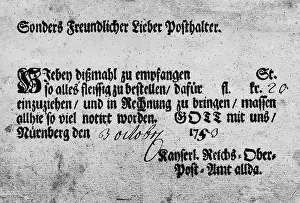 Sonders Freundlicher Lieber Posthalter.
Hieben dißmahl zu empfangen St.
so alles fleissig zu bestellen/ dafür fl. kr. 20
einzuziehen/ und in Rechnung zu bringen/ massen
allhie so viel notirt worden. GOTT mit uns/
Nürnberg den 3 octobr 1753
Kayserl. Reichs-Ober-
Post-Amt allda.